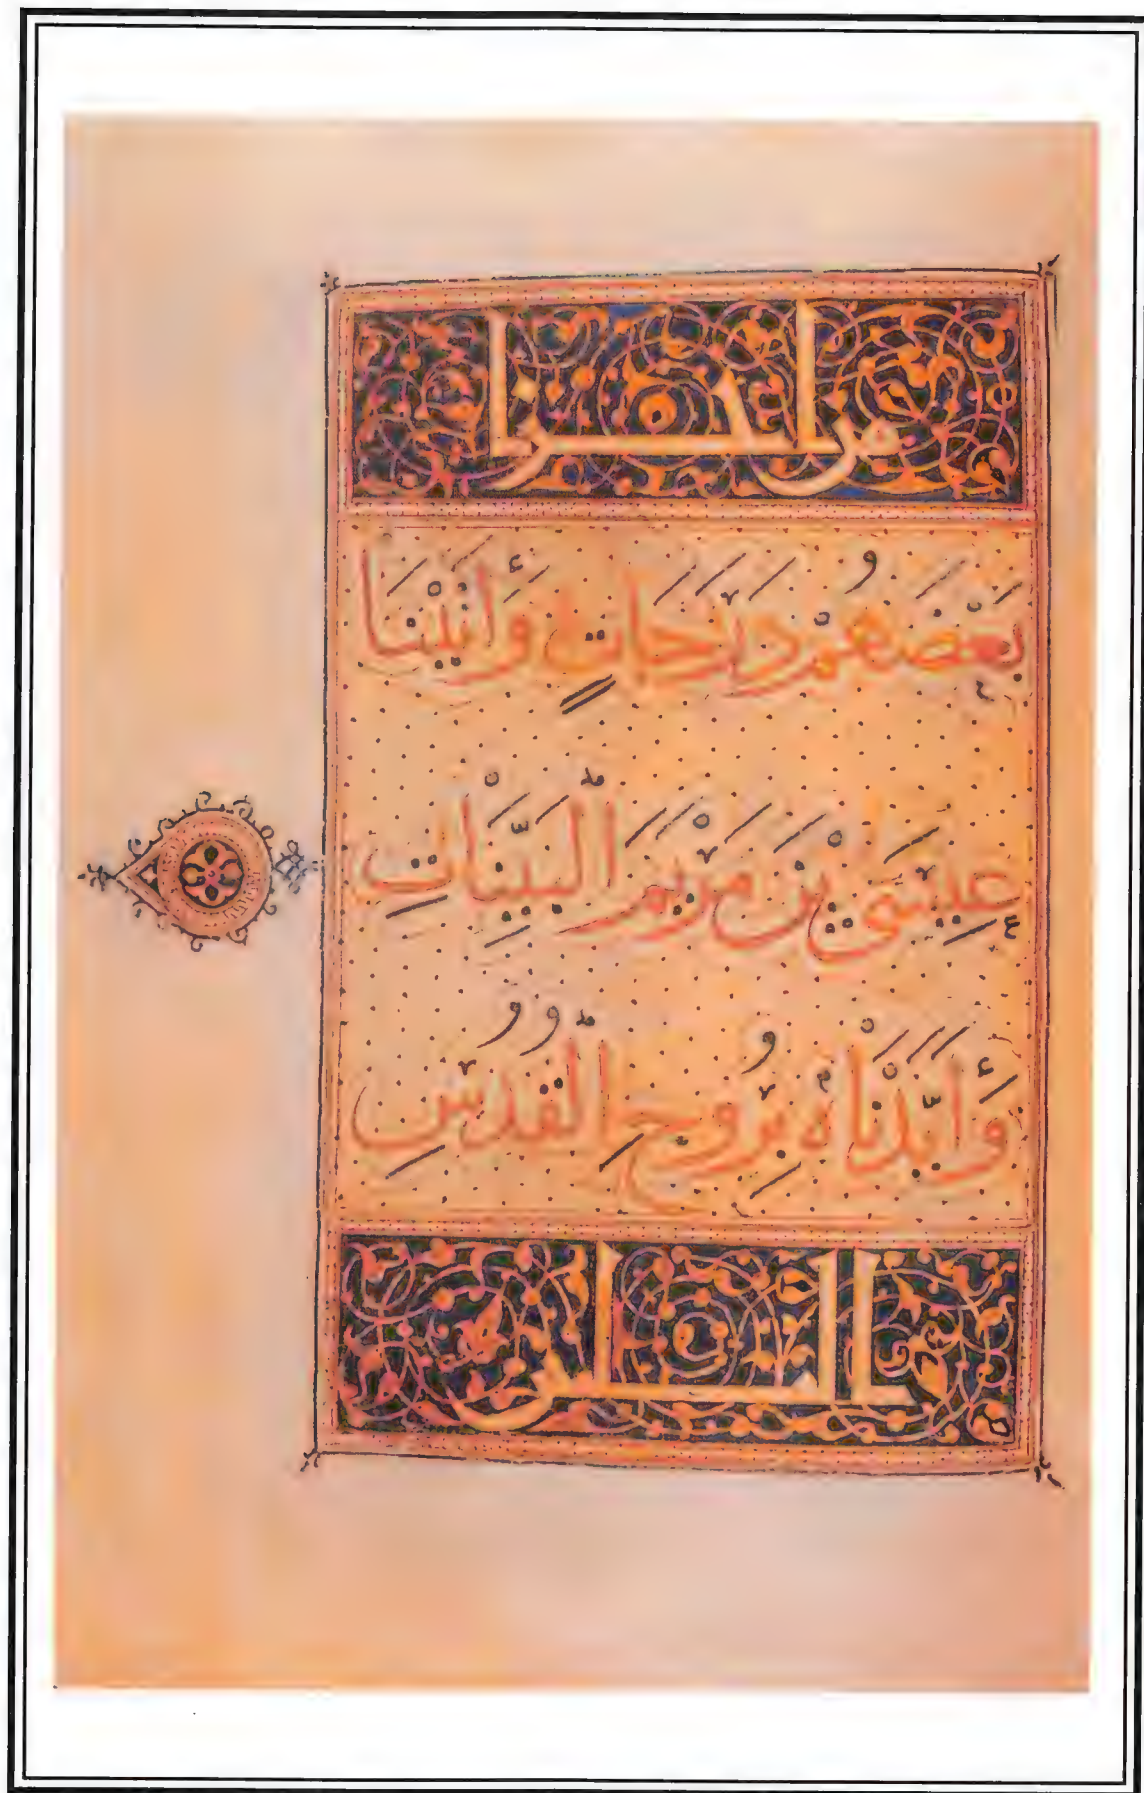 من اجزا
بَعْضَهُمْ دَرَجَاتٍ وَأَتَيْنَا
عِيسَى بْنَ مَرْيَمَ الْبَيِّنَاتِ
وَأَيَّدْنَاهُ بِرُوحِ الْقُدُسِ
الثلثين